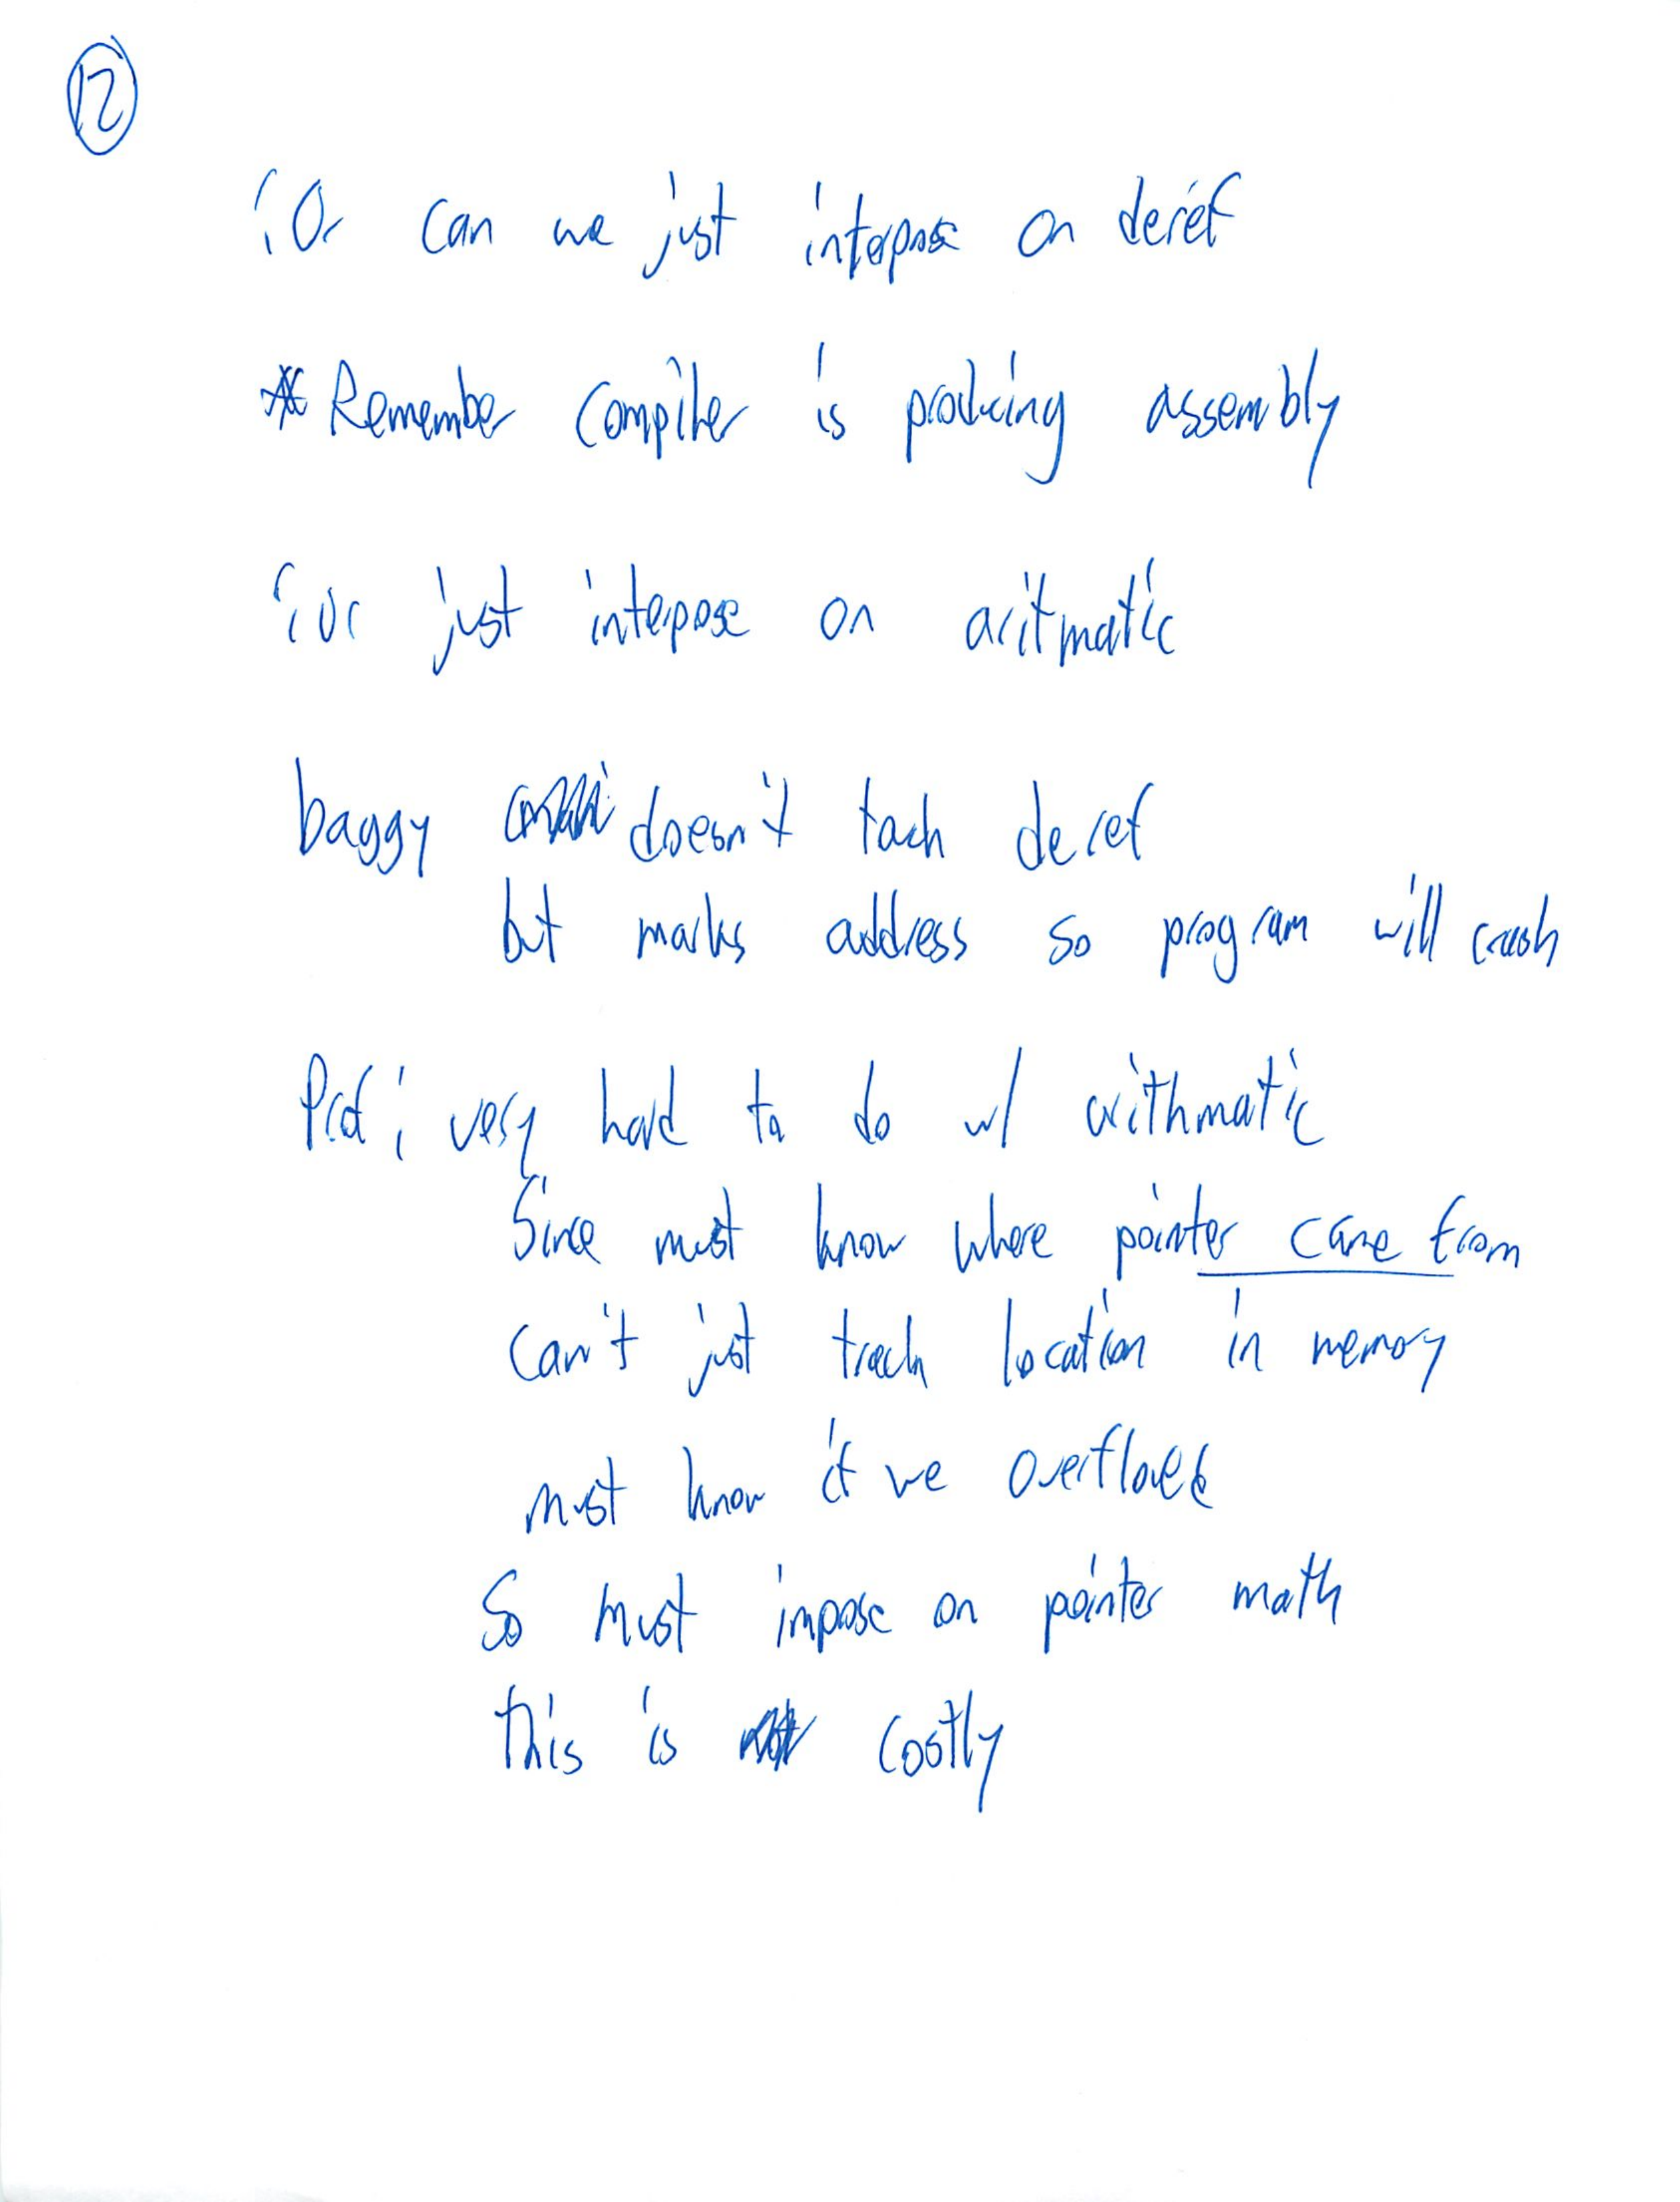 12
¿Or can we just interpose on deref
* Remember compiler is producing assembly
¿or just intepose on aritmatic
baggy doesn't tach deref
but marks address so program will crash
Prof: very hard to do w/ arithmatic
Since must know where pointer came from
Can't just track location in memory
must know if we overflowed
So must impose on pointer math
This is costly